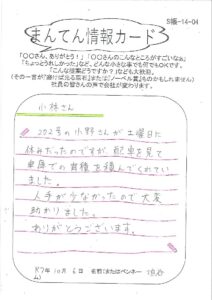 S版-14-04
まんてん情報カード
「〇〇さん、ありがとう!」「〇〇さんのこんなところがすごいなぁ」
「ちょっとうれしかった」など、どんな小さな事でもOKです。
「こんな提案どうですか?」なども大歓迎。
社員の皆さんの声で会社が変わります。
小林さん
202号の小野さんが土曜日に
休みだったのですが、配車を見て
車庫での荷積を積んでくれてい
ました。
人手が少なかったので大変
助かりました。
ありがとうございます。
R7年 10月 6日 名前(またはペンネー
ム)